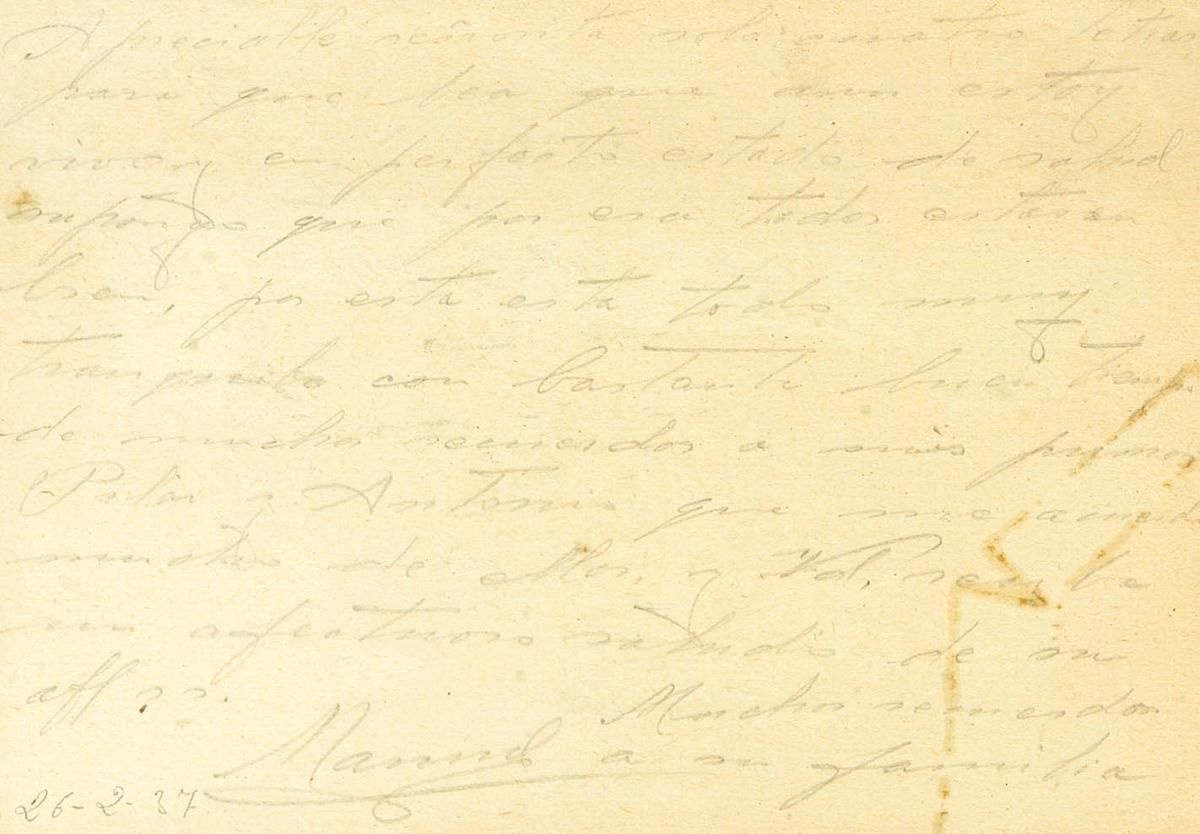 Apreciable señorita solo cuatro letras
para que bea que aun estoy
vivo y en perfecto estado de salud
supongo que por esa todos estaran
bien, por esta esta todo muy
tranquilo con bastante buen tiempo
de muchos recuerdos a mis primos
Pilar y Antonio que me acuerdo
mucho de ellos, y Vd, reciba
un afectuoso saludo de su
aff s.s.
Muchos recuerdos
Manuel a su familia
26-2-37